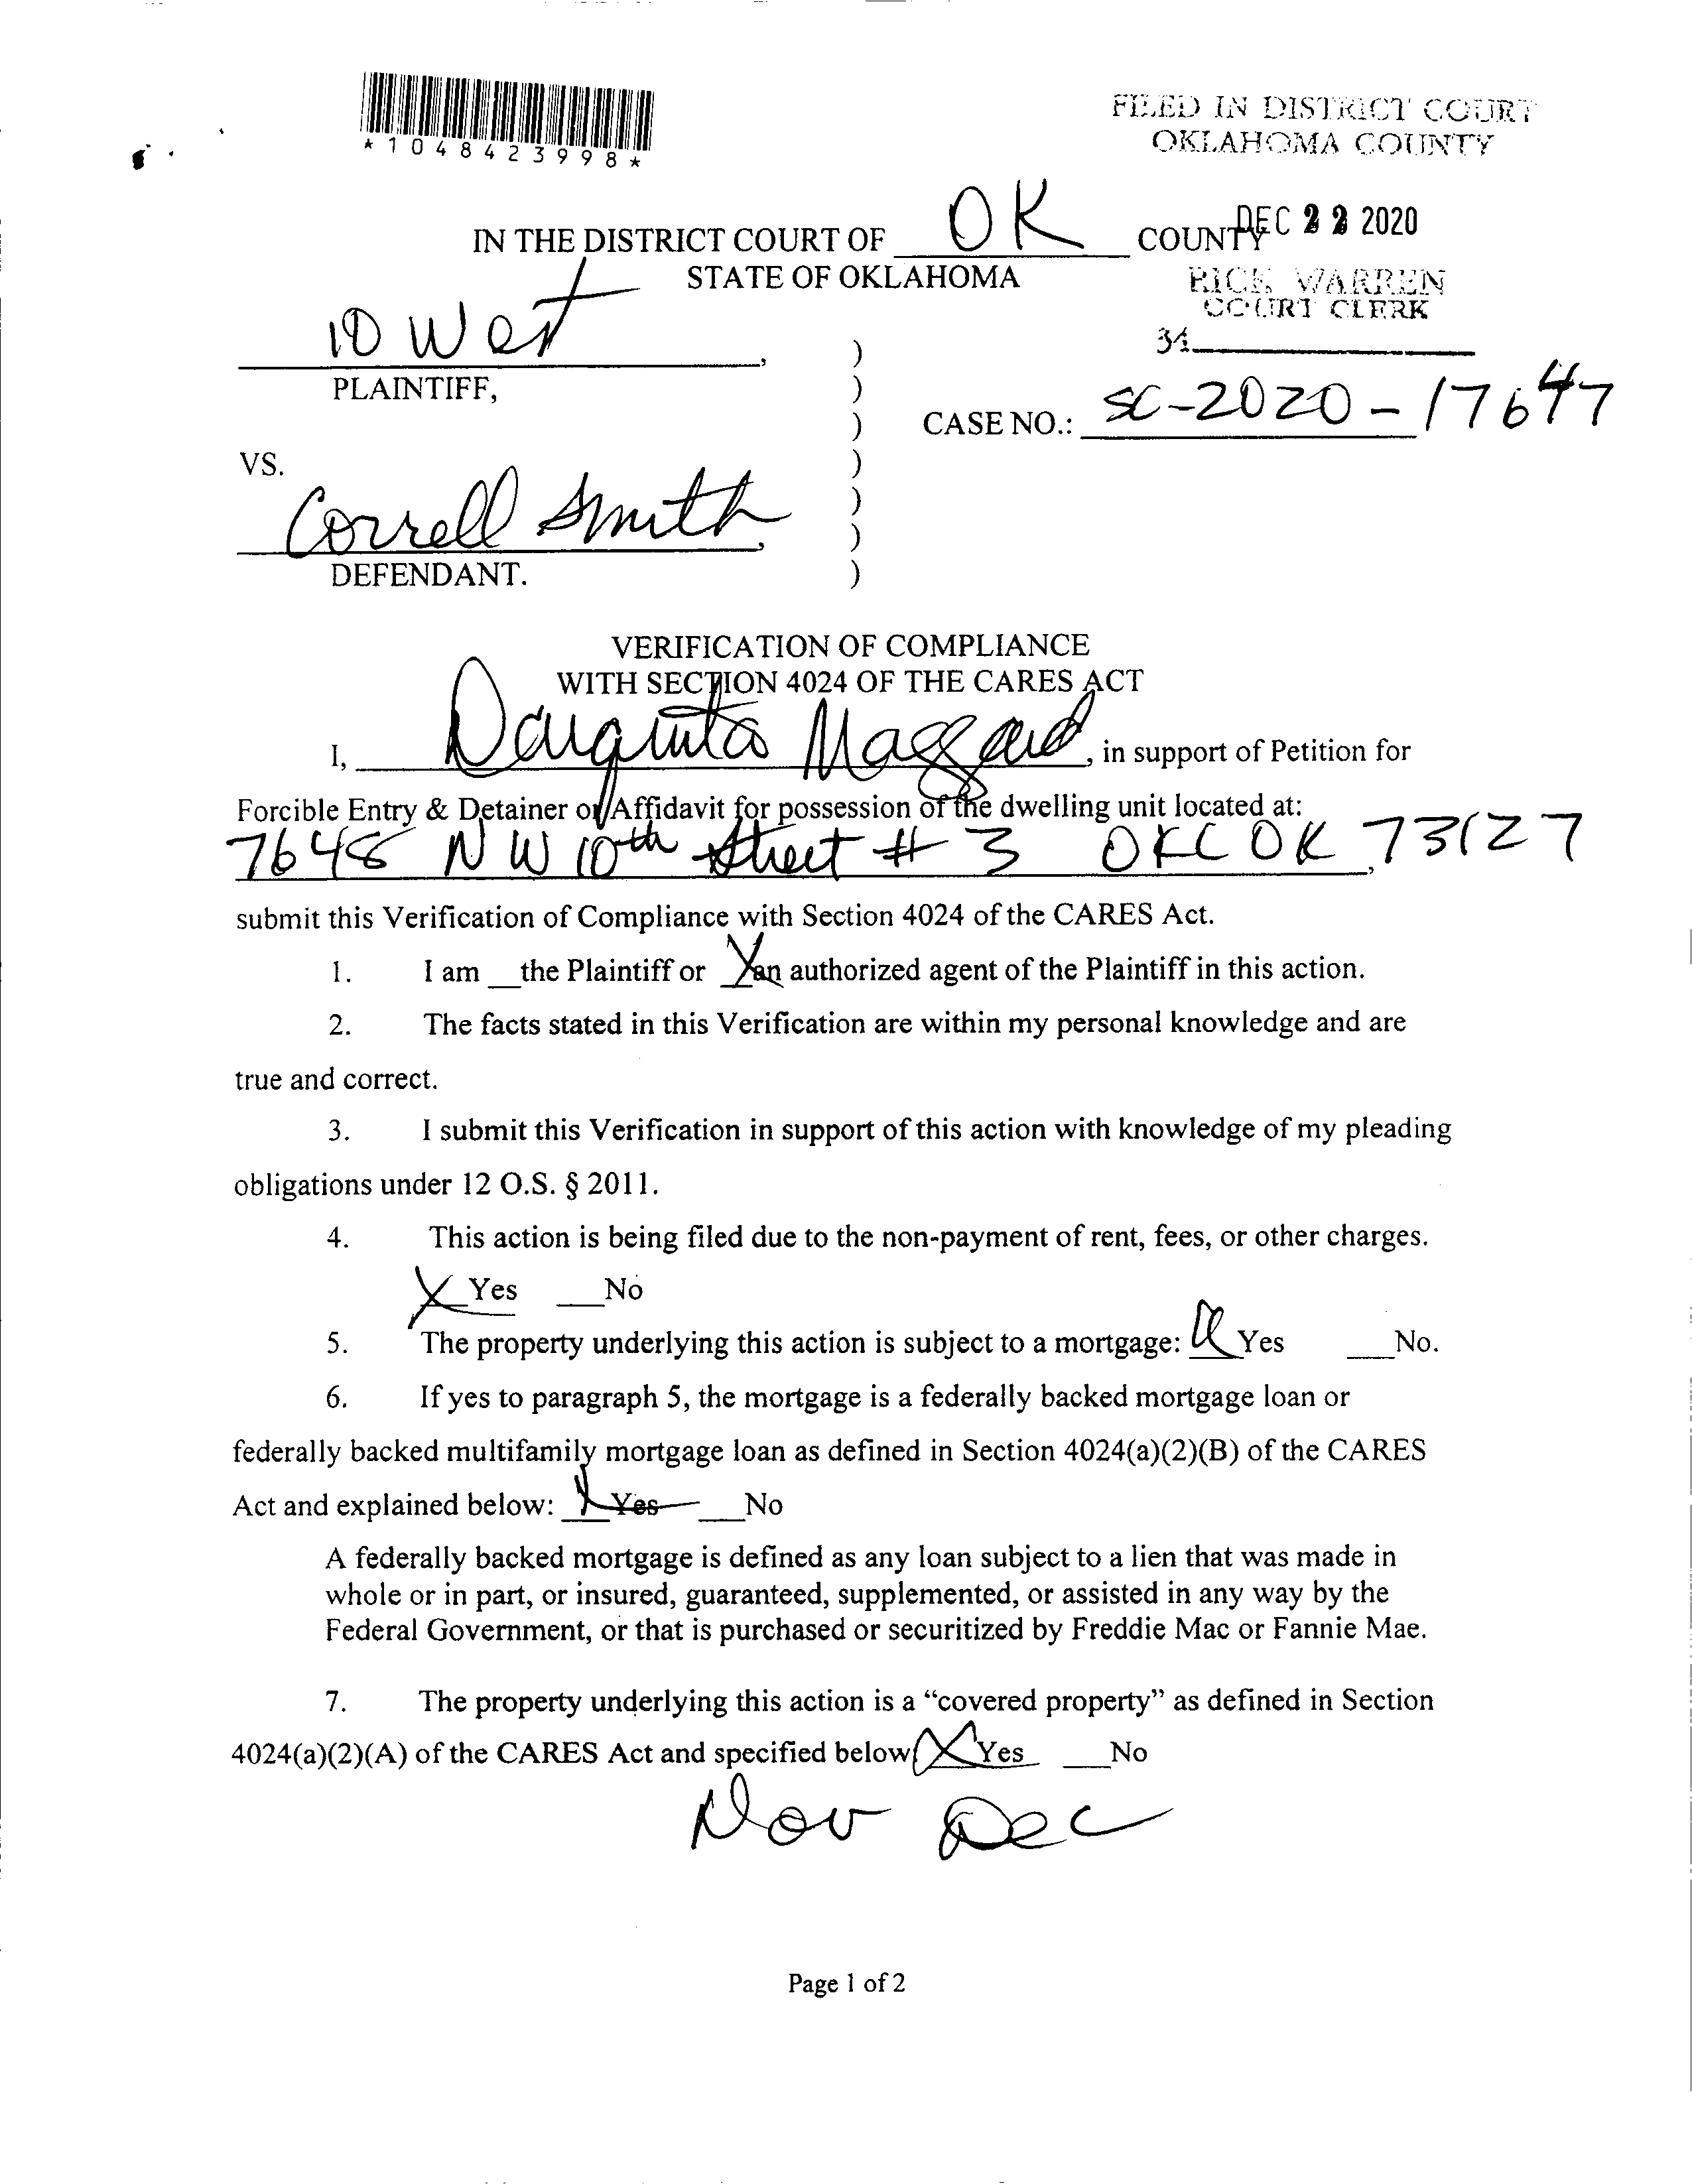 *1048423998*
FILED IN DISTRICT COURT
OKLAHOMA COUNTY
DEC 22 2020
IN THE DISTRICT COURT OF OK COUNTY
STATE OF OKLAHOMA
RICK WARREN
COURT CLERK
34
10 West,
PLAINTIFF,
CASE NO.: SC-2020-17647
VS.
Correll Smith,
DEFENDANT.
)
)
)
)
)
)
)
VERIFICATION OF COMPLIANCE
WITH SECTION 4024 OF THE CARES ACT
I, Maggard, in support of Petition for
Forcible Entry & Detainer or Affidavit for possession of the dwelling unit located at:
7648 NW 10th Street # 3 OKC OK 73127,
submit this Verification of Compliance with Section 4024 of the CARES Act.
1. I am __the Plaintiff or X an authorized agent of the Plaintiff in this action.
2. The facts stated in this Verification are within my personal knowledge and are
true and correct.
3. I submit this Verification in support of this action with knowledge of my pleading
obligations under 12 O.S. § 2011.
4. This action is being filed due to the non-payment of rent, fees, or other charges.
X Yes ___No
5. The property underlying this action is subject to a mortgage: Yes ___No.
6. If yes to paragraph 5, the mortgage is a federally backed mortgage loan or
federally backed multifamily mortgage loan as defined in Section 4024(a)(2)(B) of the CARES
Act and explained below: X Yes ___No
A federally backed mortgage is defined as any loan subject to a lien that was made in
whole or in part, or insured, guaranteed, supplemented, or assisted in any way by the
Federal Government, or that is purchased or securitized by Freddie Mac or Fannie Mae.
7. The property underlying this action is a “covered property” as defined in Section
4024(a)(2)(A) of the CARES Act and specified below X Yes ___No
Nov Dec
Page 1 of 2